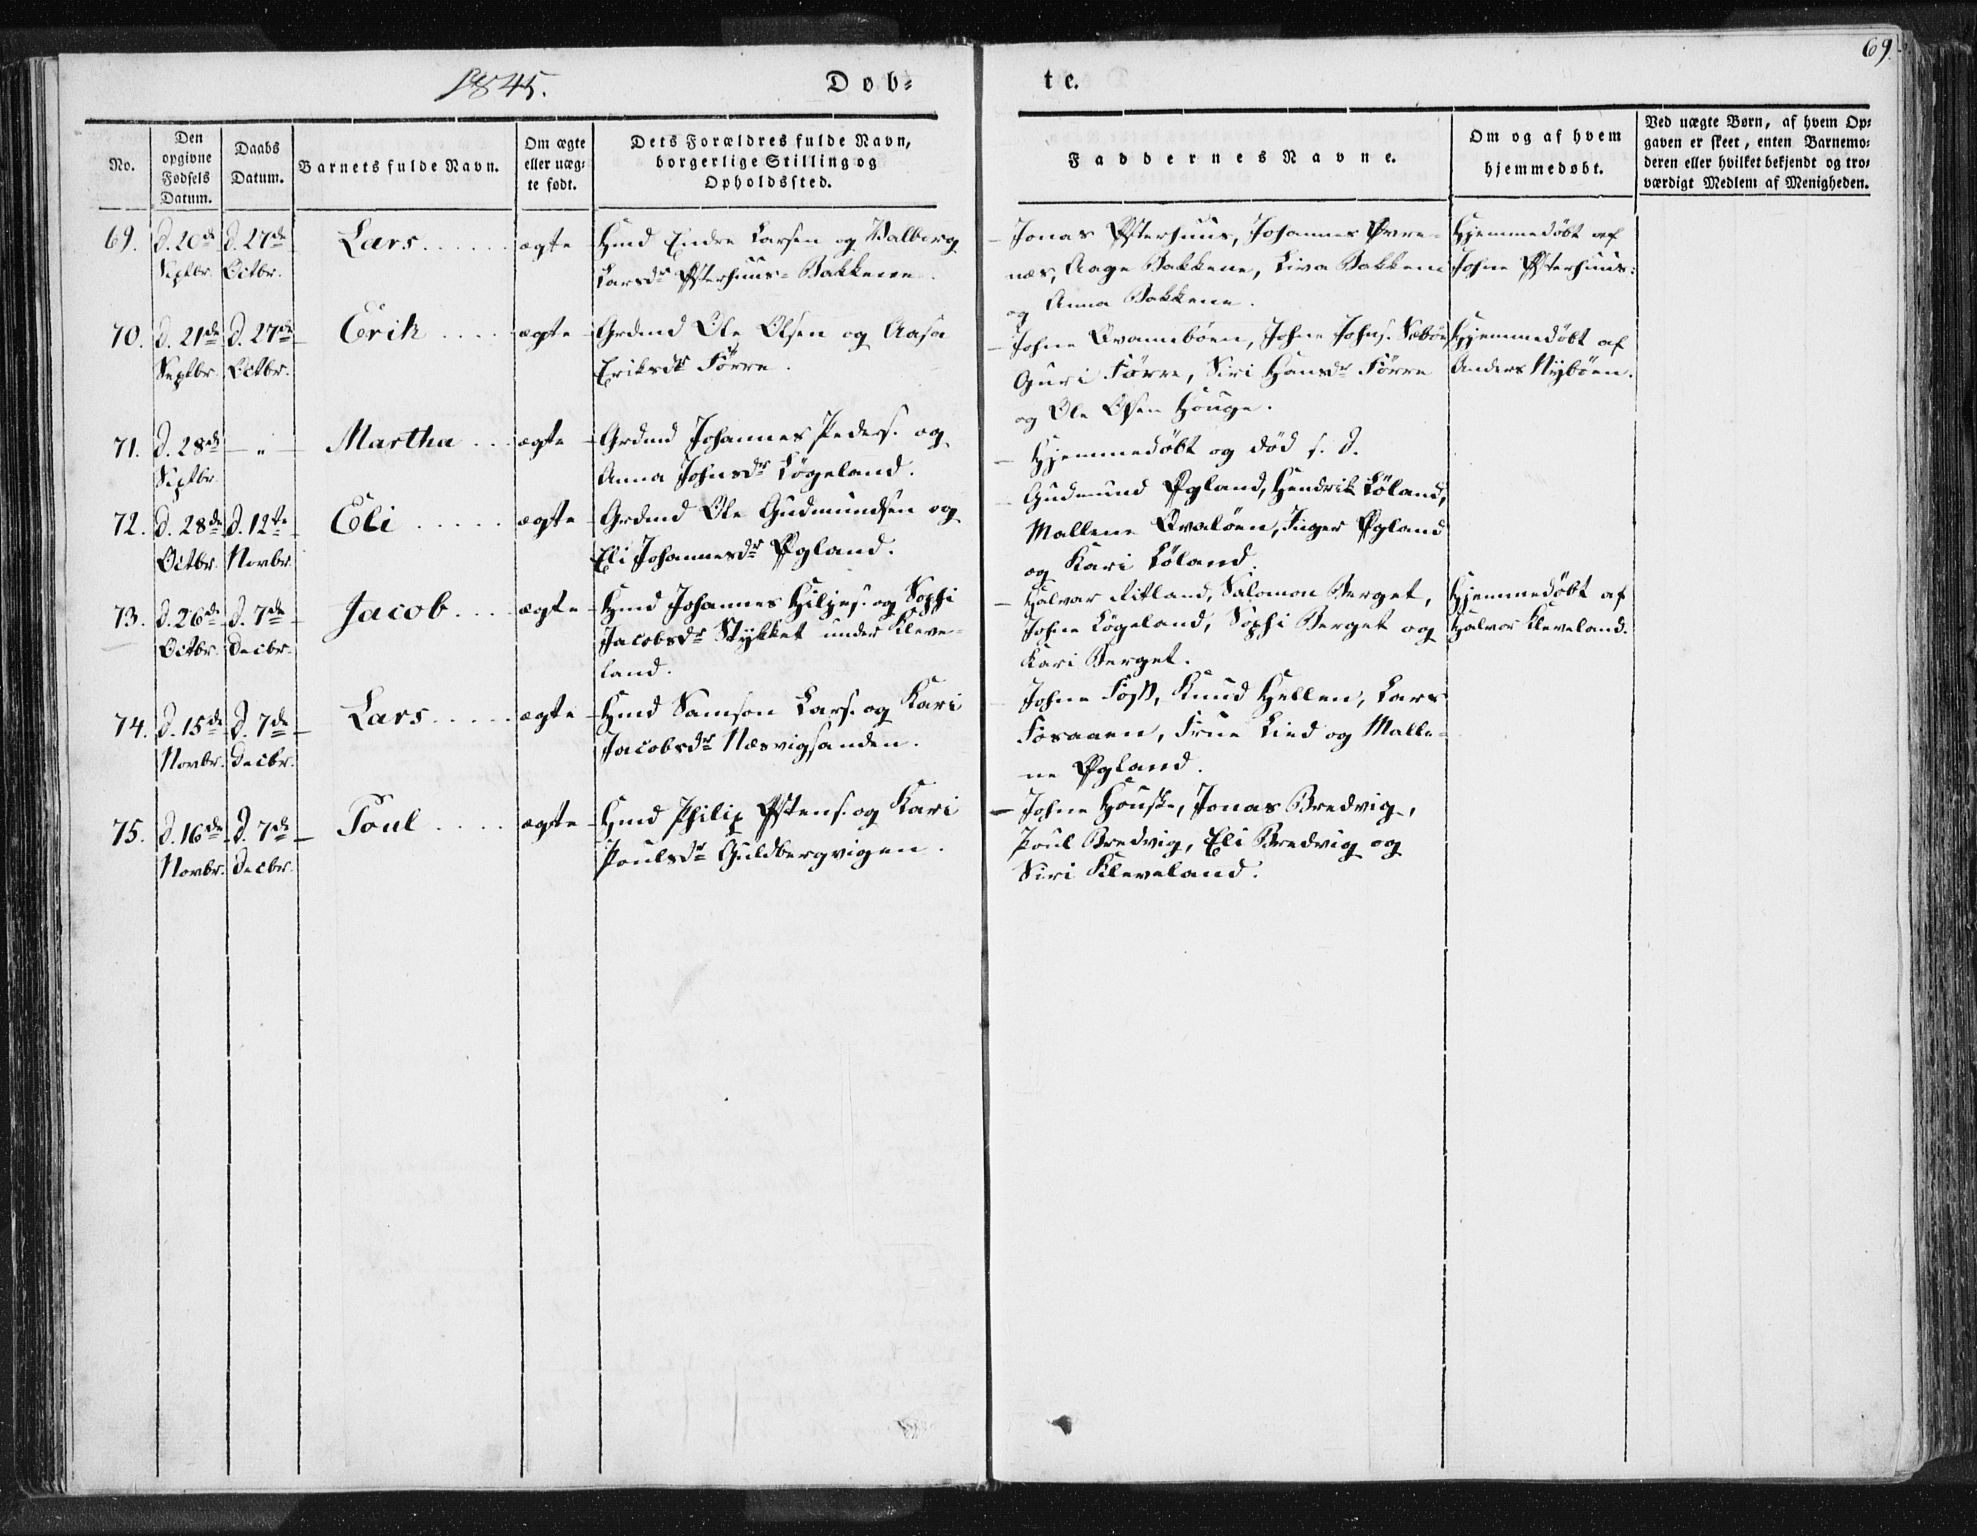 69.
1845.
Døb-
te.
No.
Den opgivne Fødsels Datum.
Daabs Datum.
Barnets fulde Navn.
Om ægte eller uægte født.
Dets Forældres fulde Navn, borgerlige Stilling og Opholdssted.
Faddernes Navne.
Om og af hvem hjemmedøbt.
Ved uægte Børn, af hvem Opgaven er skeet, enten Barnemoderen eller hvilket bekjendt og troværdigt Medlem af Menigheden.
69. d. 20de Septbr. d. 27de Octbr. Lars ægte
Hmd Endre Larsen og Valborg
Larsdr Østerhuus-Bakkene.
Jonas Østerhuus, Johannes
næs, Aage Bakkene, Liva Bakkene
og Anna Bakkene.
Hjemmedøbt af
Johne Østerhuus.
70. d. 21de Septbr. d. 27de Octbr. Erik ægte
Grdmd Ole Olsen og Aasa
Eriksdr Førre.
Johne Qvamebøen, Johne Johns. Nebøe,
Guri Førre, Siri Hansdr Førre
og Ole Olsen Houge.
Hjemmedøbt af
Anders Nybøen.
71. d. 28de Septbr. — " — Martha ægte
Grdmd Johannes Peders. og
Anna Johnsdr Løgeland.
Hjemmedøbt og død s. d.
72. d. 28de Octbr. d. 12te Novbr. Eli ægte
Grdmd Ole Gudmundsen og
Eli Johannesdr Øgland.
Gudmund Øgland, Hendrik Løland,
Mallene Qvaløen, Inger Øgland
og Kari Løland.
73. d. 26de Octbr. d. 7de Decbr. Jacob ægte
Hmd Johannes Hiljes. og Sophi
Jacobsdr Stykket under Kleve-
land.
Halvar Ritland, Salomon Berget,
Johne Løgeland, Sophi Berget og
Kari Berget.
Hjemmedøbt af
Halvor Kleveland.
74. d. 15de Novbr. d. 7de Decbr. Lars ægte
Hmd Samson Lars. og Kari
Jacobsdr Næsvigsanden.
Johne Foss, Knud Hellen, Lars
Fosaaen, Frue Lied og Malle-
ne Øgland.
75. d. 16de Novbr. d. 7de Decbr. Poul ægte
Hmd Philip Østens. og Kari
Poulsdr Guldbergvigen.
Johne Houske, Jonas Bredvig,
Poul Bredvig, Eli Bredvig og
Siri Kleveland.